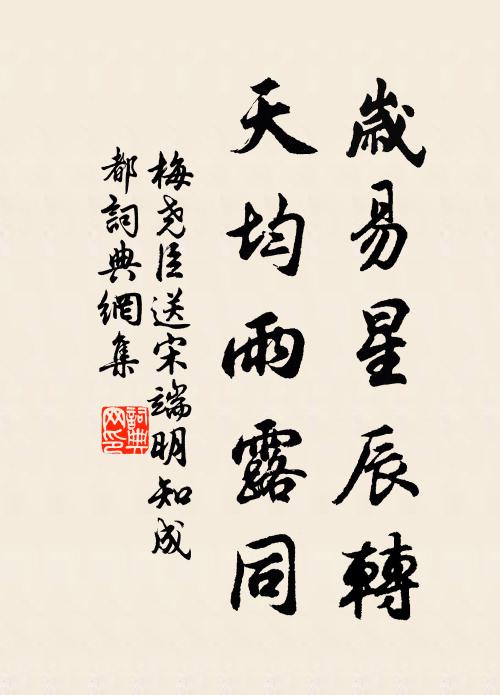 歲易星辰轉
天均雨露同
梅尧臣送宋端明知成
都詞典網集
詞典
网印